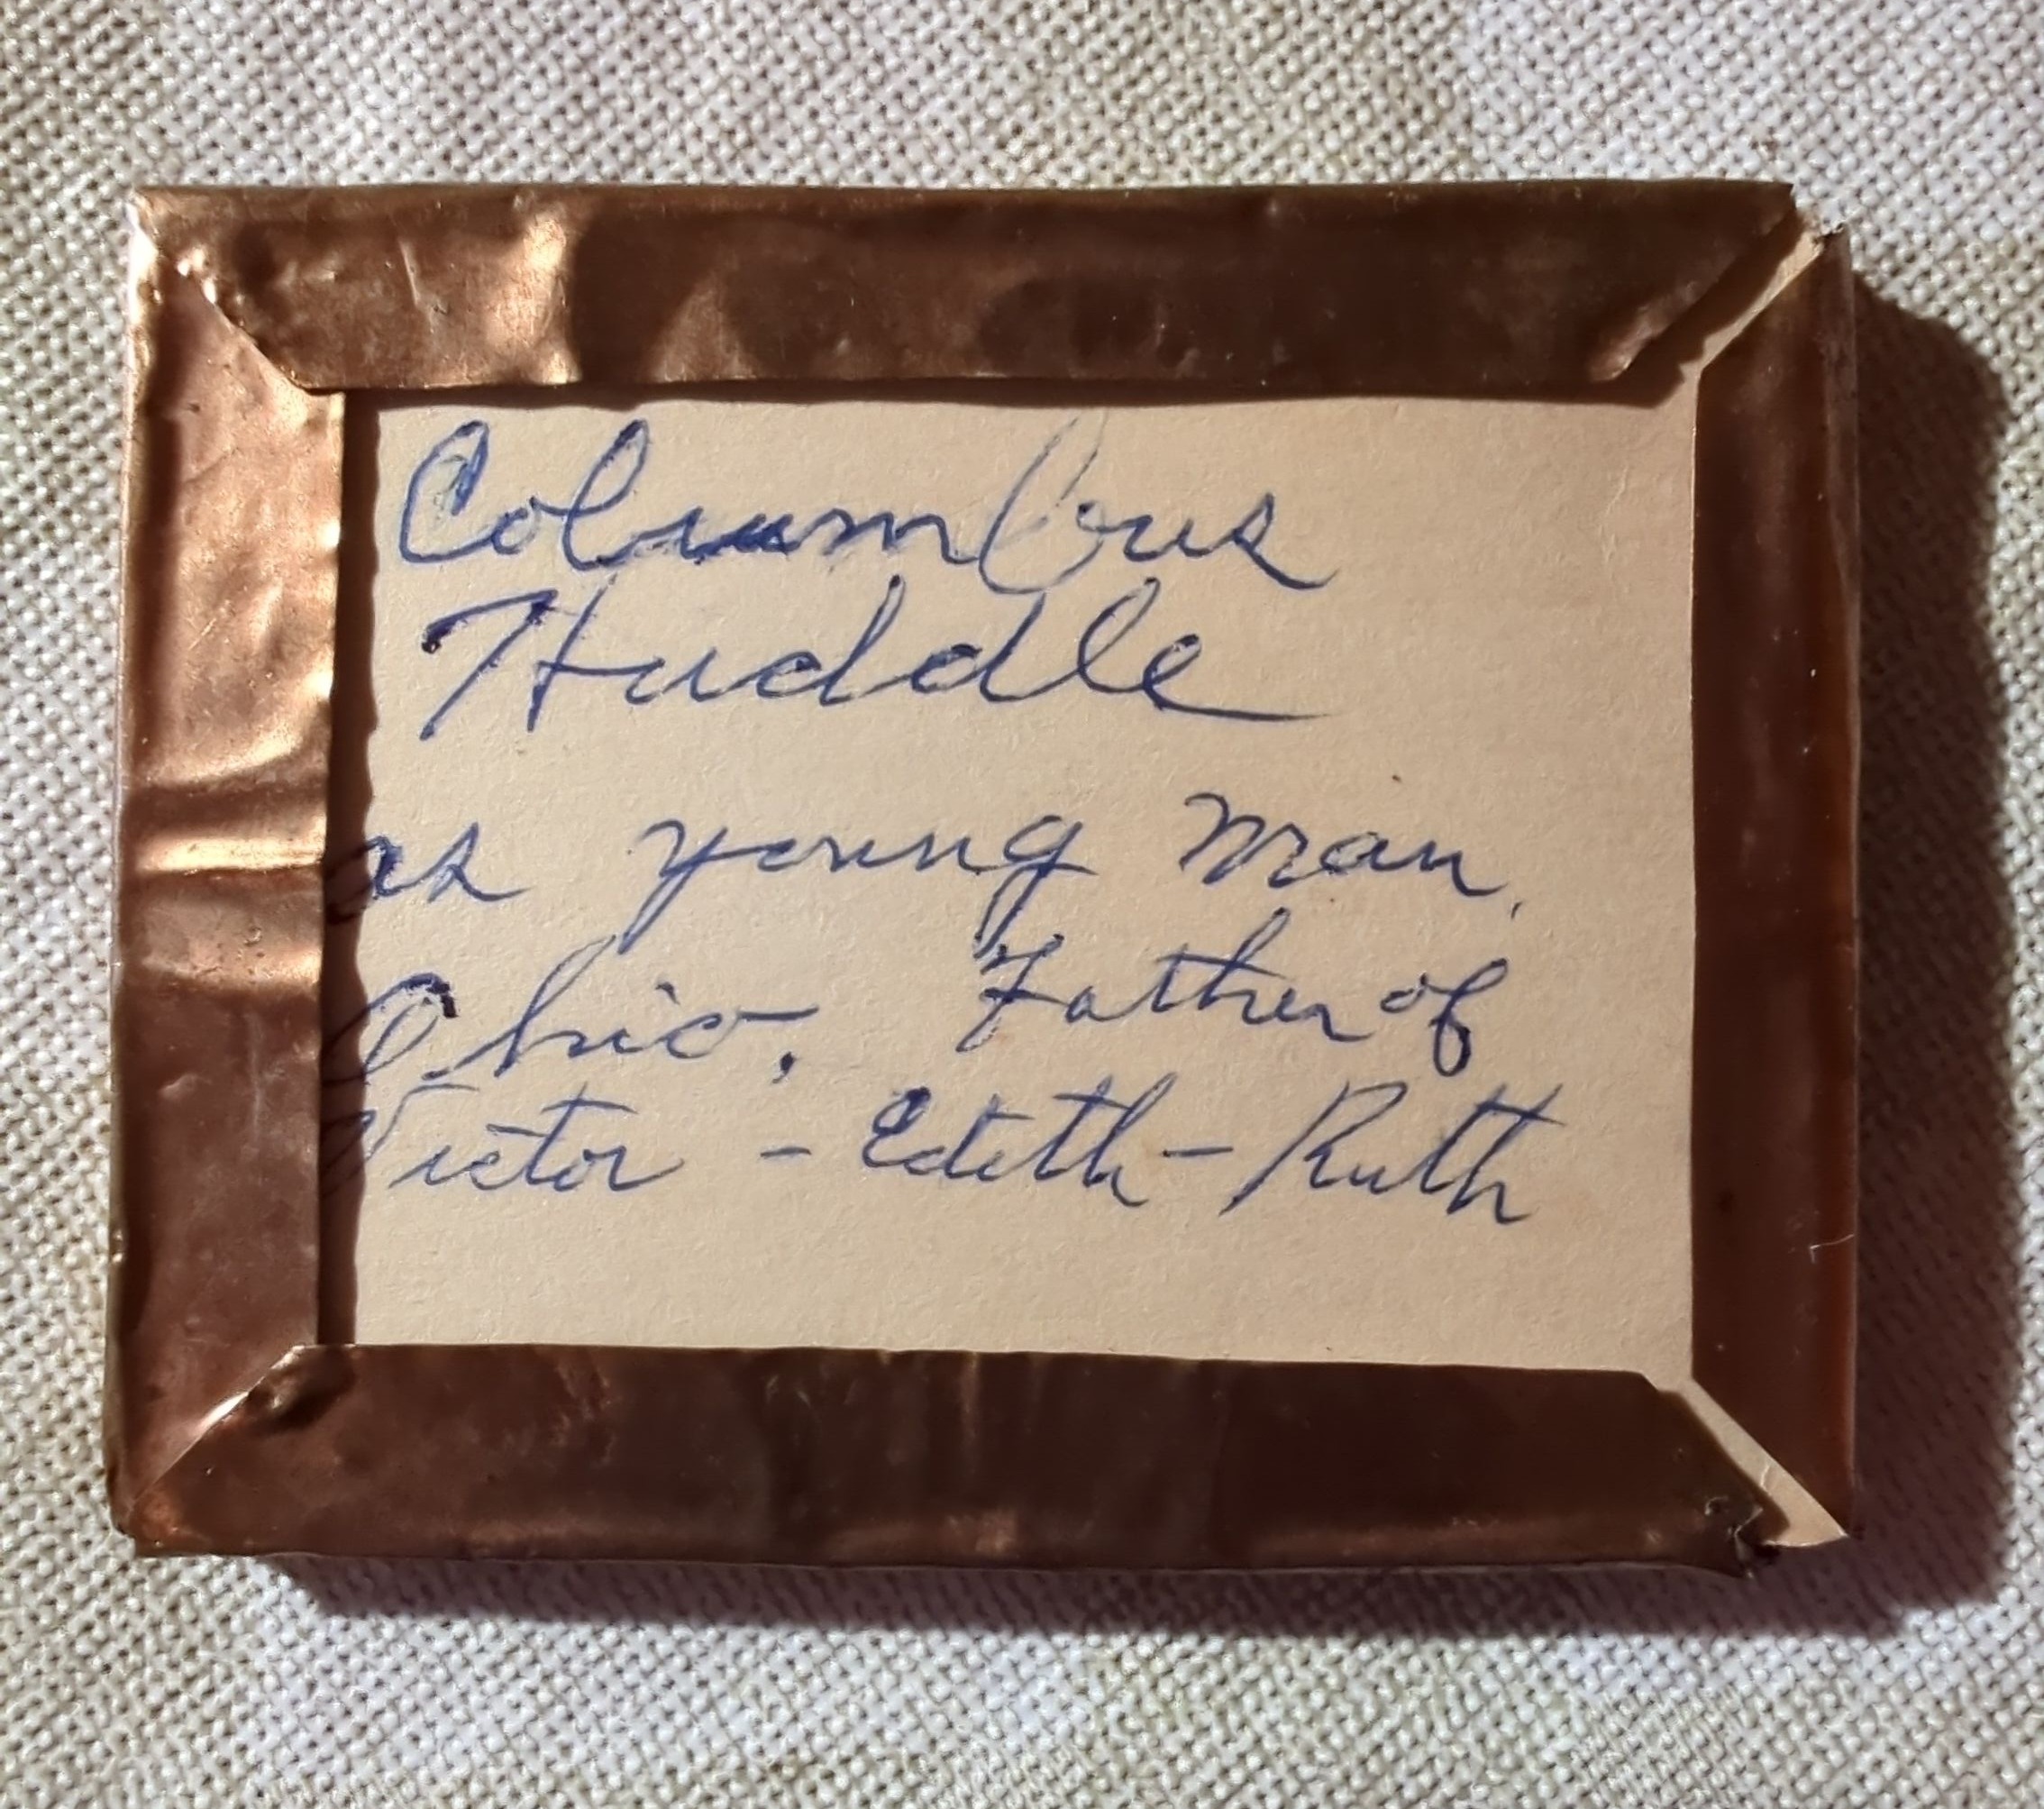 Columbus
Huddle
as young man,
Ohio, Father of
Victor - Edith - Ruth